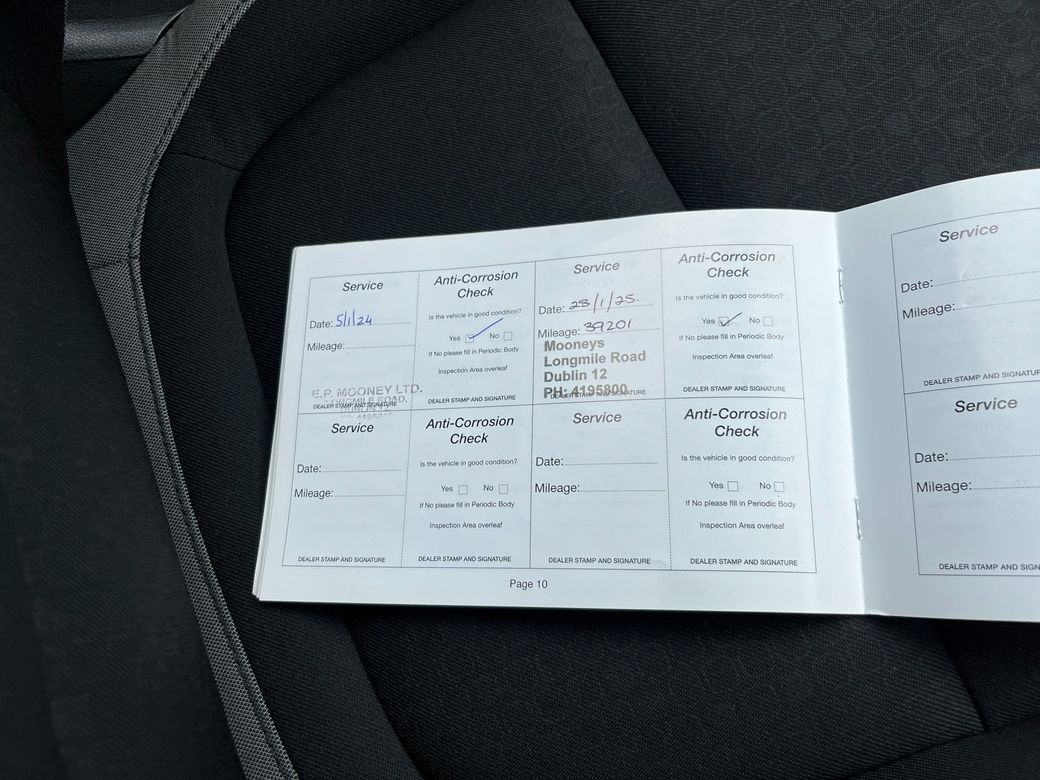 Service
Date: 5/1/24
Mileage:
E.P. MOONEY LTD.
LONGMILE ROAD,
DUBLIN 12.
DEALER STAMP AND SIGNATURE
Anti-Corrosion
Check
Is the vehicle in good condition?
Yes No
If No please fill in Periodic Body
Inspection Area overleaf
DEALER STAMP AND SIGNATURE
Service
Date: 28/1/25.
Mileage: 39201
Mooneys
Longmile Road
Dublin 12
PH: 4195800
DEALER STAMP AND SIGNATURE
Anti-Corrosion
Check
Is the vehicle in good condition?
Yes No
If No please fill in Periodic Body
Inspection Area overleaf
DEALER STAMP AND SIGNATURE
Service
Date:
Mileage:
DEALER STAMP AND SIGNATURE
Anti-Corrosion
Check
Is the vehicle in good condition?
Yes No
If No please fill in Periodic Body
Inspection Area overleaf
DEALER STAMP AND SIGNATURE
Service
Date:
Mileage:
DEALER STAMP AND SIGNATURE
Anti-Corrosion
Check
Is the vehicle in good condition?
Yes No
If No please fill in Periodic Body
Inspection Area overleaf
DEALER STAMP AND SIGNATURE
Page 10
Service
Date:
Mileage:
DEALER STAMP AND SIGNATURE
Service
Date:
Mileage:
DEALER STAMP AND SIGN